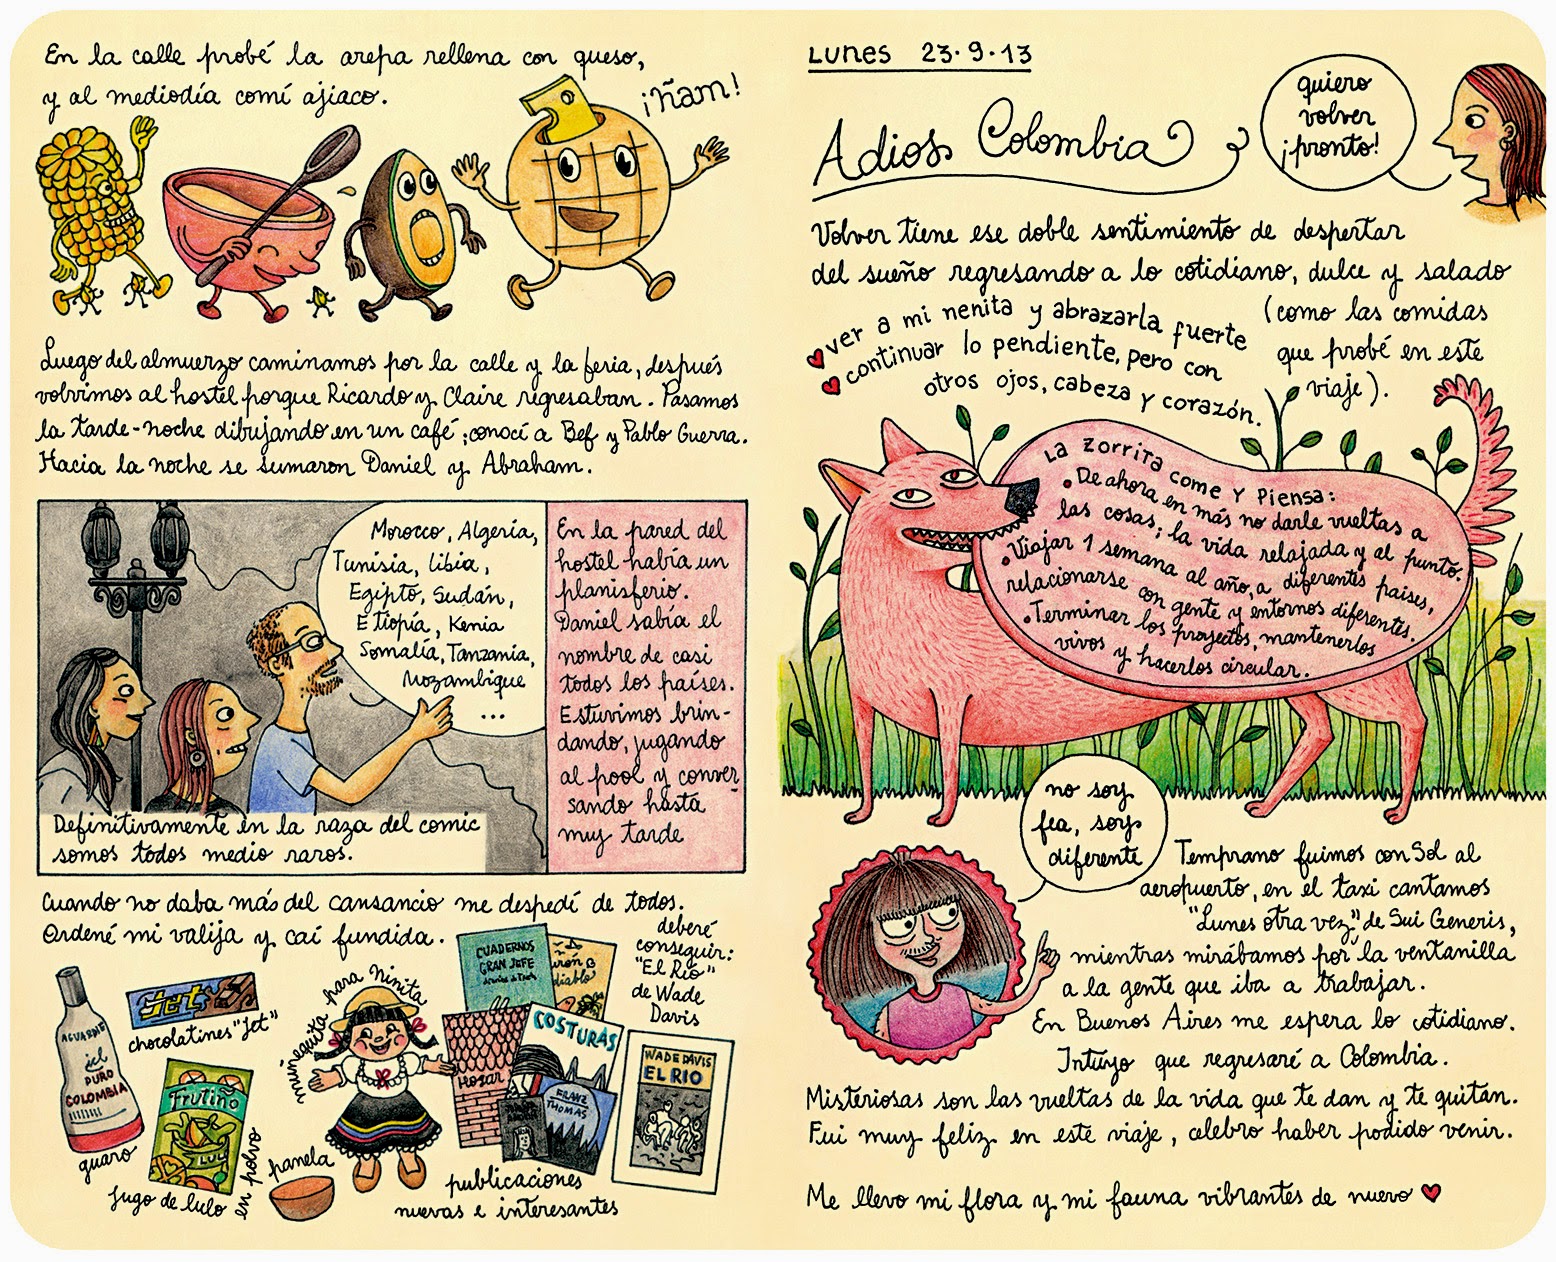 En la calle probé la arepa rellena con queso,
y al mediodía comí ajiaco.
¡ñam!
Luego del almuerzo caminamos por la calle y la feria, después
volvimos al hostel porque Ricardo y Claire regresaban. Pasamos
la tarde-noche dibujando en un café; conocí a Bef y Pablo Guerra.
Hacia la noche se sumaron Daniel y Abraham.
Morocco, Algeria,
Tunisia, Libia,
Egipto, Sudán,
Etiopía, Kenia
Somalía, Tanzania,
Mozambique
...
Definitivamente en la raza del comic
somos todos medio raros.
En la pared del
hostel había un
planisferio.
Daniel sabía el
nombre de casi
todos los países.
Estuvimos brin-
dando, jugando
al pool y conver-
sando hasta
muy tarde
Cuando no daba más del cansancio me despedí de todos.
Ordené mi valija y caí fundida.
AGUARDIE
PURO
COLOMBIA
guaro
Jet
chocolatines "Jet"
Frutiño
LULO
jugo de lulo en polvo
panela
muñequita para Ninita
CUADERNOS
GRAN JEFE
diablo
HOGAR
COSTURAS
FRANZ
THOMAS
WADE DAVIS
EL RIO
publicaciones
nuevas e interesantes
deberé
conseguir:
"El Río"
de Wade
Davis
LUNES 23·9·13
Adios Colombia
quiero
volver
¡pronto!
Volver tiene ese doble sentimiento de despertar
del sueño regresando a lo cotidiano, dulce y salado
(como las comidas
que probé en este
viaje).
ver a mi nenita y abrazarla fuerte
continuar lo pendiente, pero con
otros ojos, cabeza y corazón.
La zorrita come y piensa:
• De ahora en más no darle vueltas a
las cosas; la vida relajada y al punto.
• Viajar 1 semana al año, a diferentes países,
relacionarse con gente y entornos diferentes.
• Terminar los proyectos, mantenerlos
vivos y hacerlos circular.
no soy
fea, soy
diferente
Temprano fuimos con Sol al
aeropuerto, en el taxi cantamos
"Lunes otra vez" de Sui Generis,
mientras mirábamos por la ventanilla
a la gente que iba a trabajar.
En Buenos Aires me espera lo cotidiano.
Intuyo que regresaré a Colombia.
Misteriosas son las vueltas de la vida que te dan y te quitan.
Fui muy feliz en este viaje, celebro haber podido venir.
Me llevo mi flora y mi fauna vibrantes de nuevo